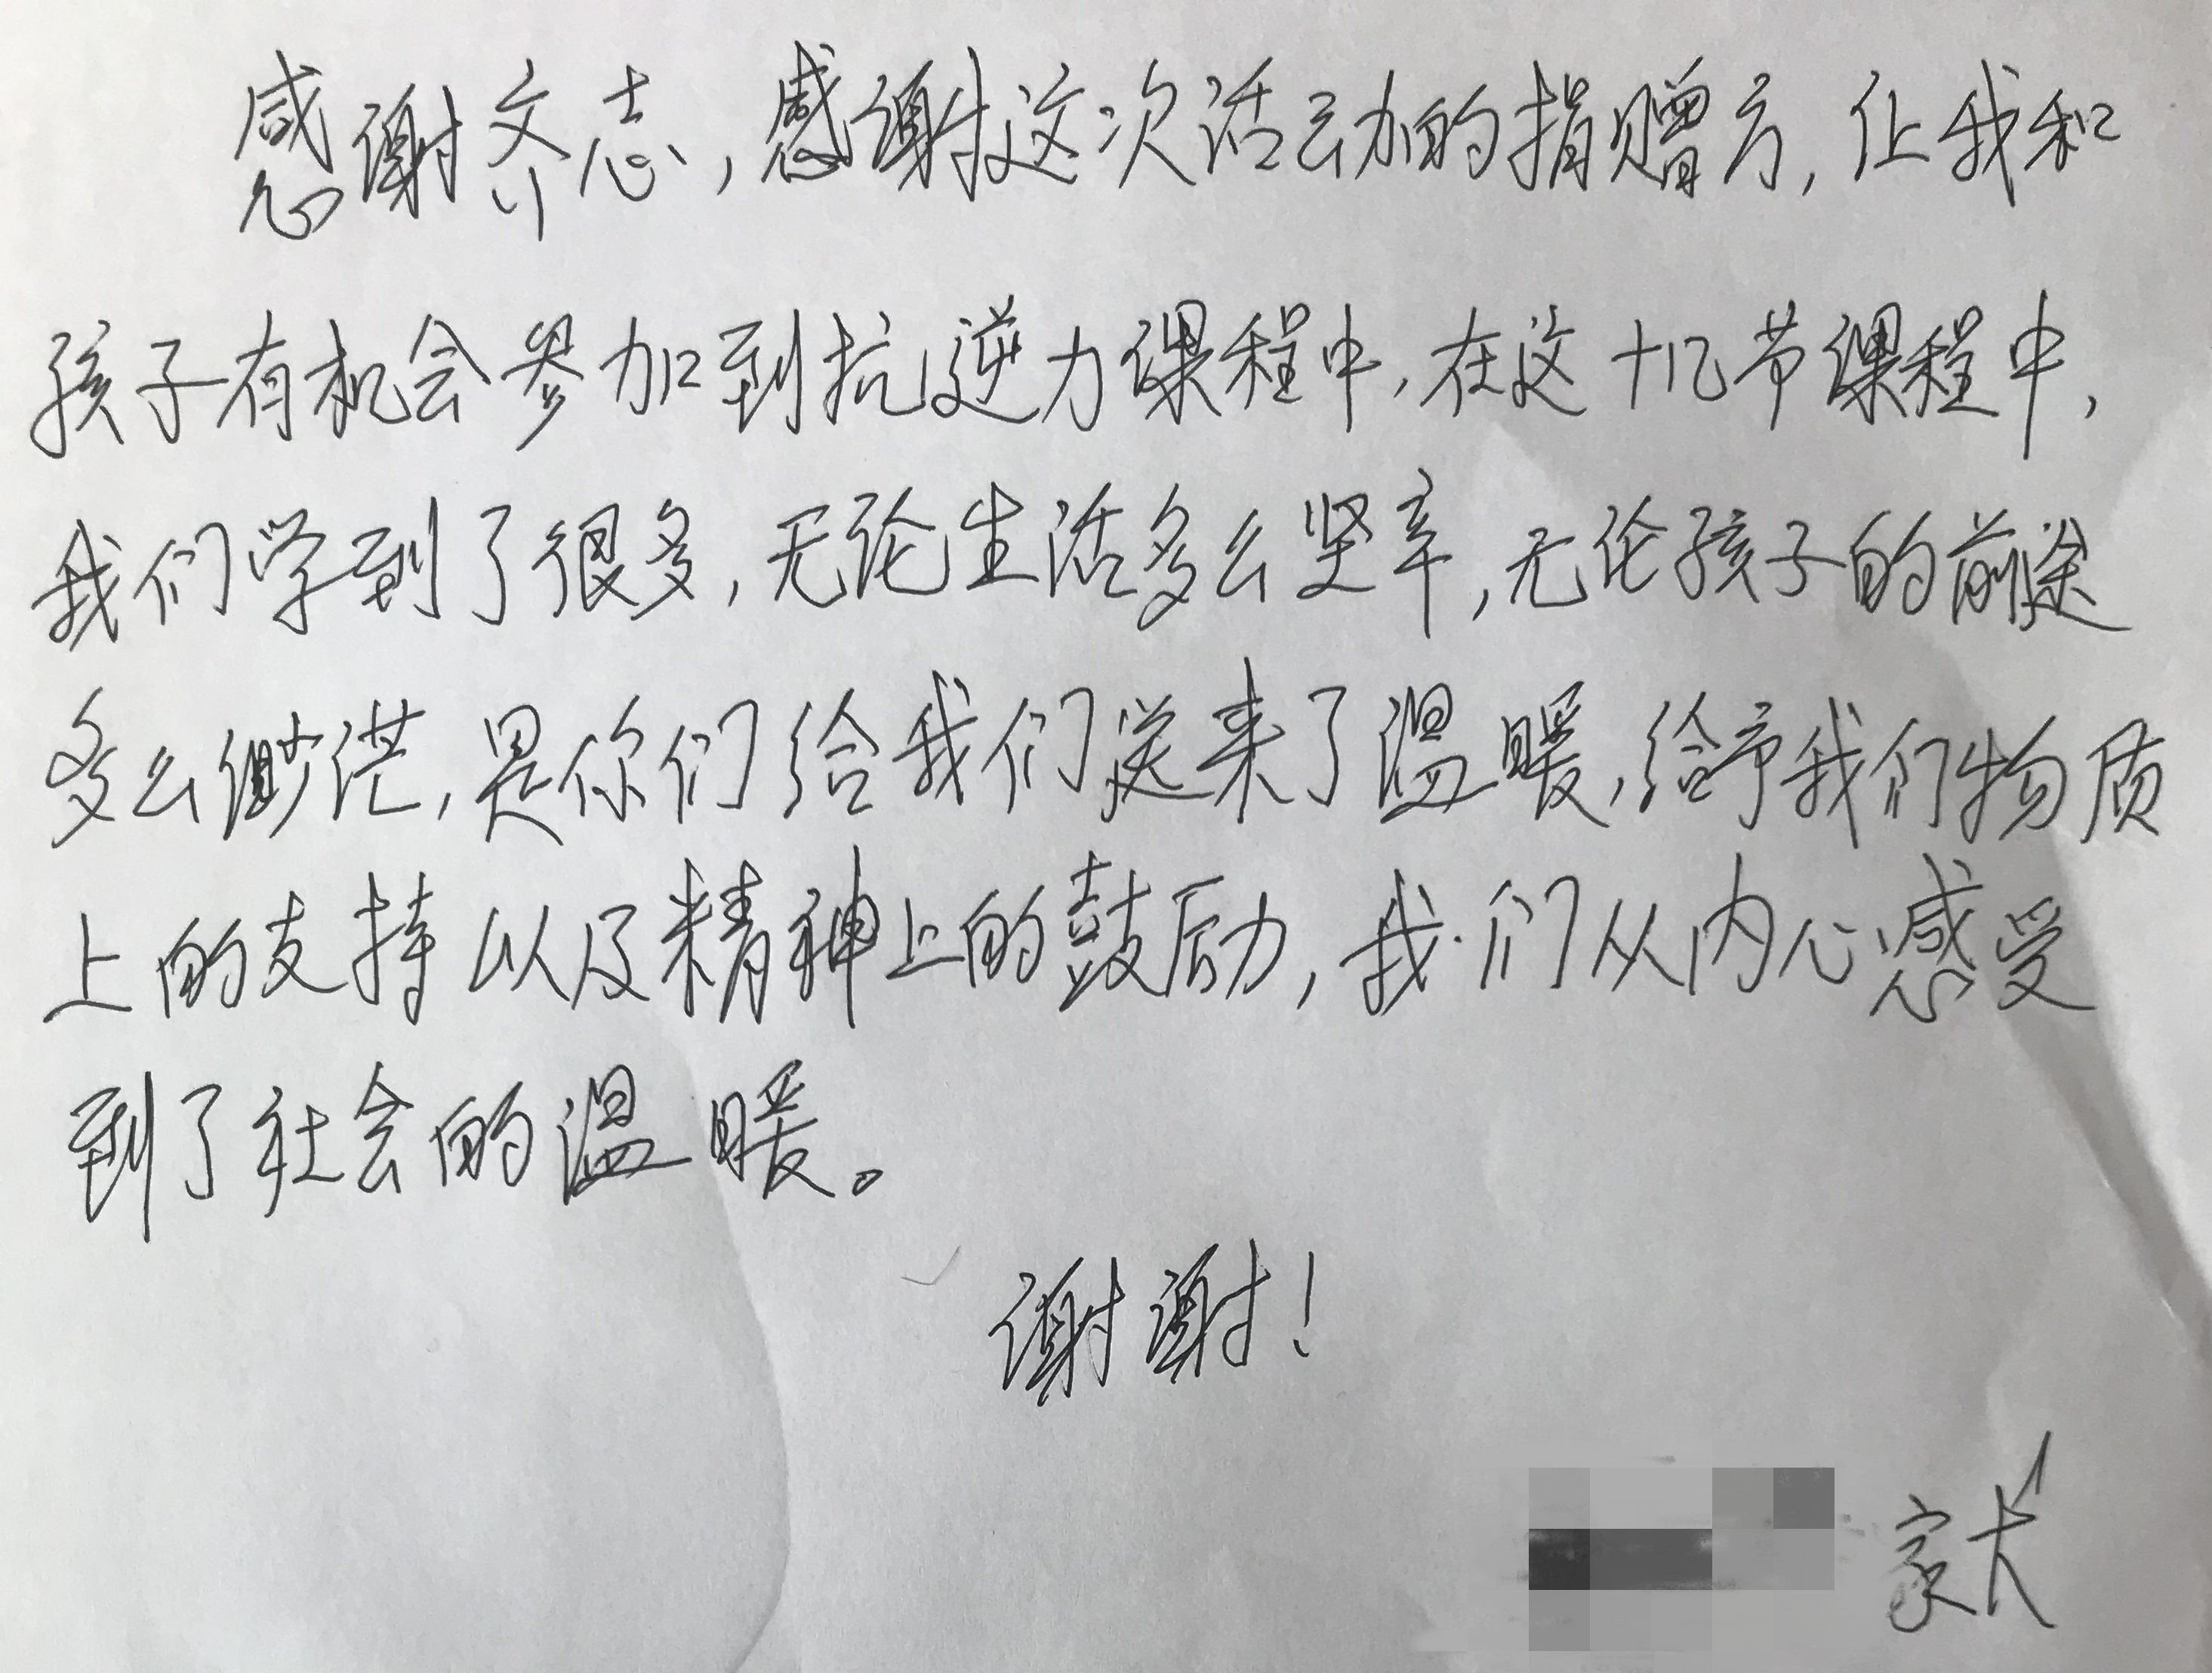 感谢齐志，感谢这次活动的捐赠方，让我和
孩子有机会参加到抗逆力课程中，在这十几节课程中，
我们学到了很多，无论生活多么坚辛，无论孩子的前途
多么缈茫，是你们给我们送来了温暖，给予我们物质
上的支持以及精神上的鼓励，我们从内心感受
到了社会的温暖。
谢谢！
家长